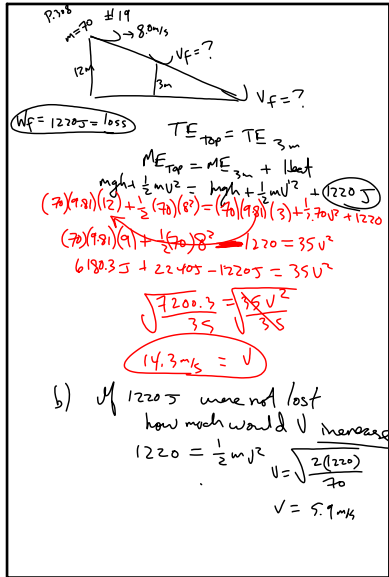 P.308 #19
m=70 → 8.0m/s
Vf = ?
12m
3m
Vf = ?
Wf = 1220J = loss
TE top = TE 3m
ME Top = ME 3m + Heat
mgh + ½mv² = mgh + ½mv'² + 1220 J
(70)(9.81)(12) + ½(70)(8²) = (70)(9.81)(3) + ½70v² + 1220
(70)(9.81)(9) + ½(70)8² - 1220 = 35v²
6180.3J + 2240J - 1220J = 35v²
√7200.3/35 = √35v²/35
14.3m/s = V
b) If 1220J were not lost
how much would V increase
1220 = ½mv²
V = √2(1220)/70
V = 5.9m/s